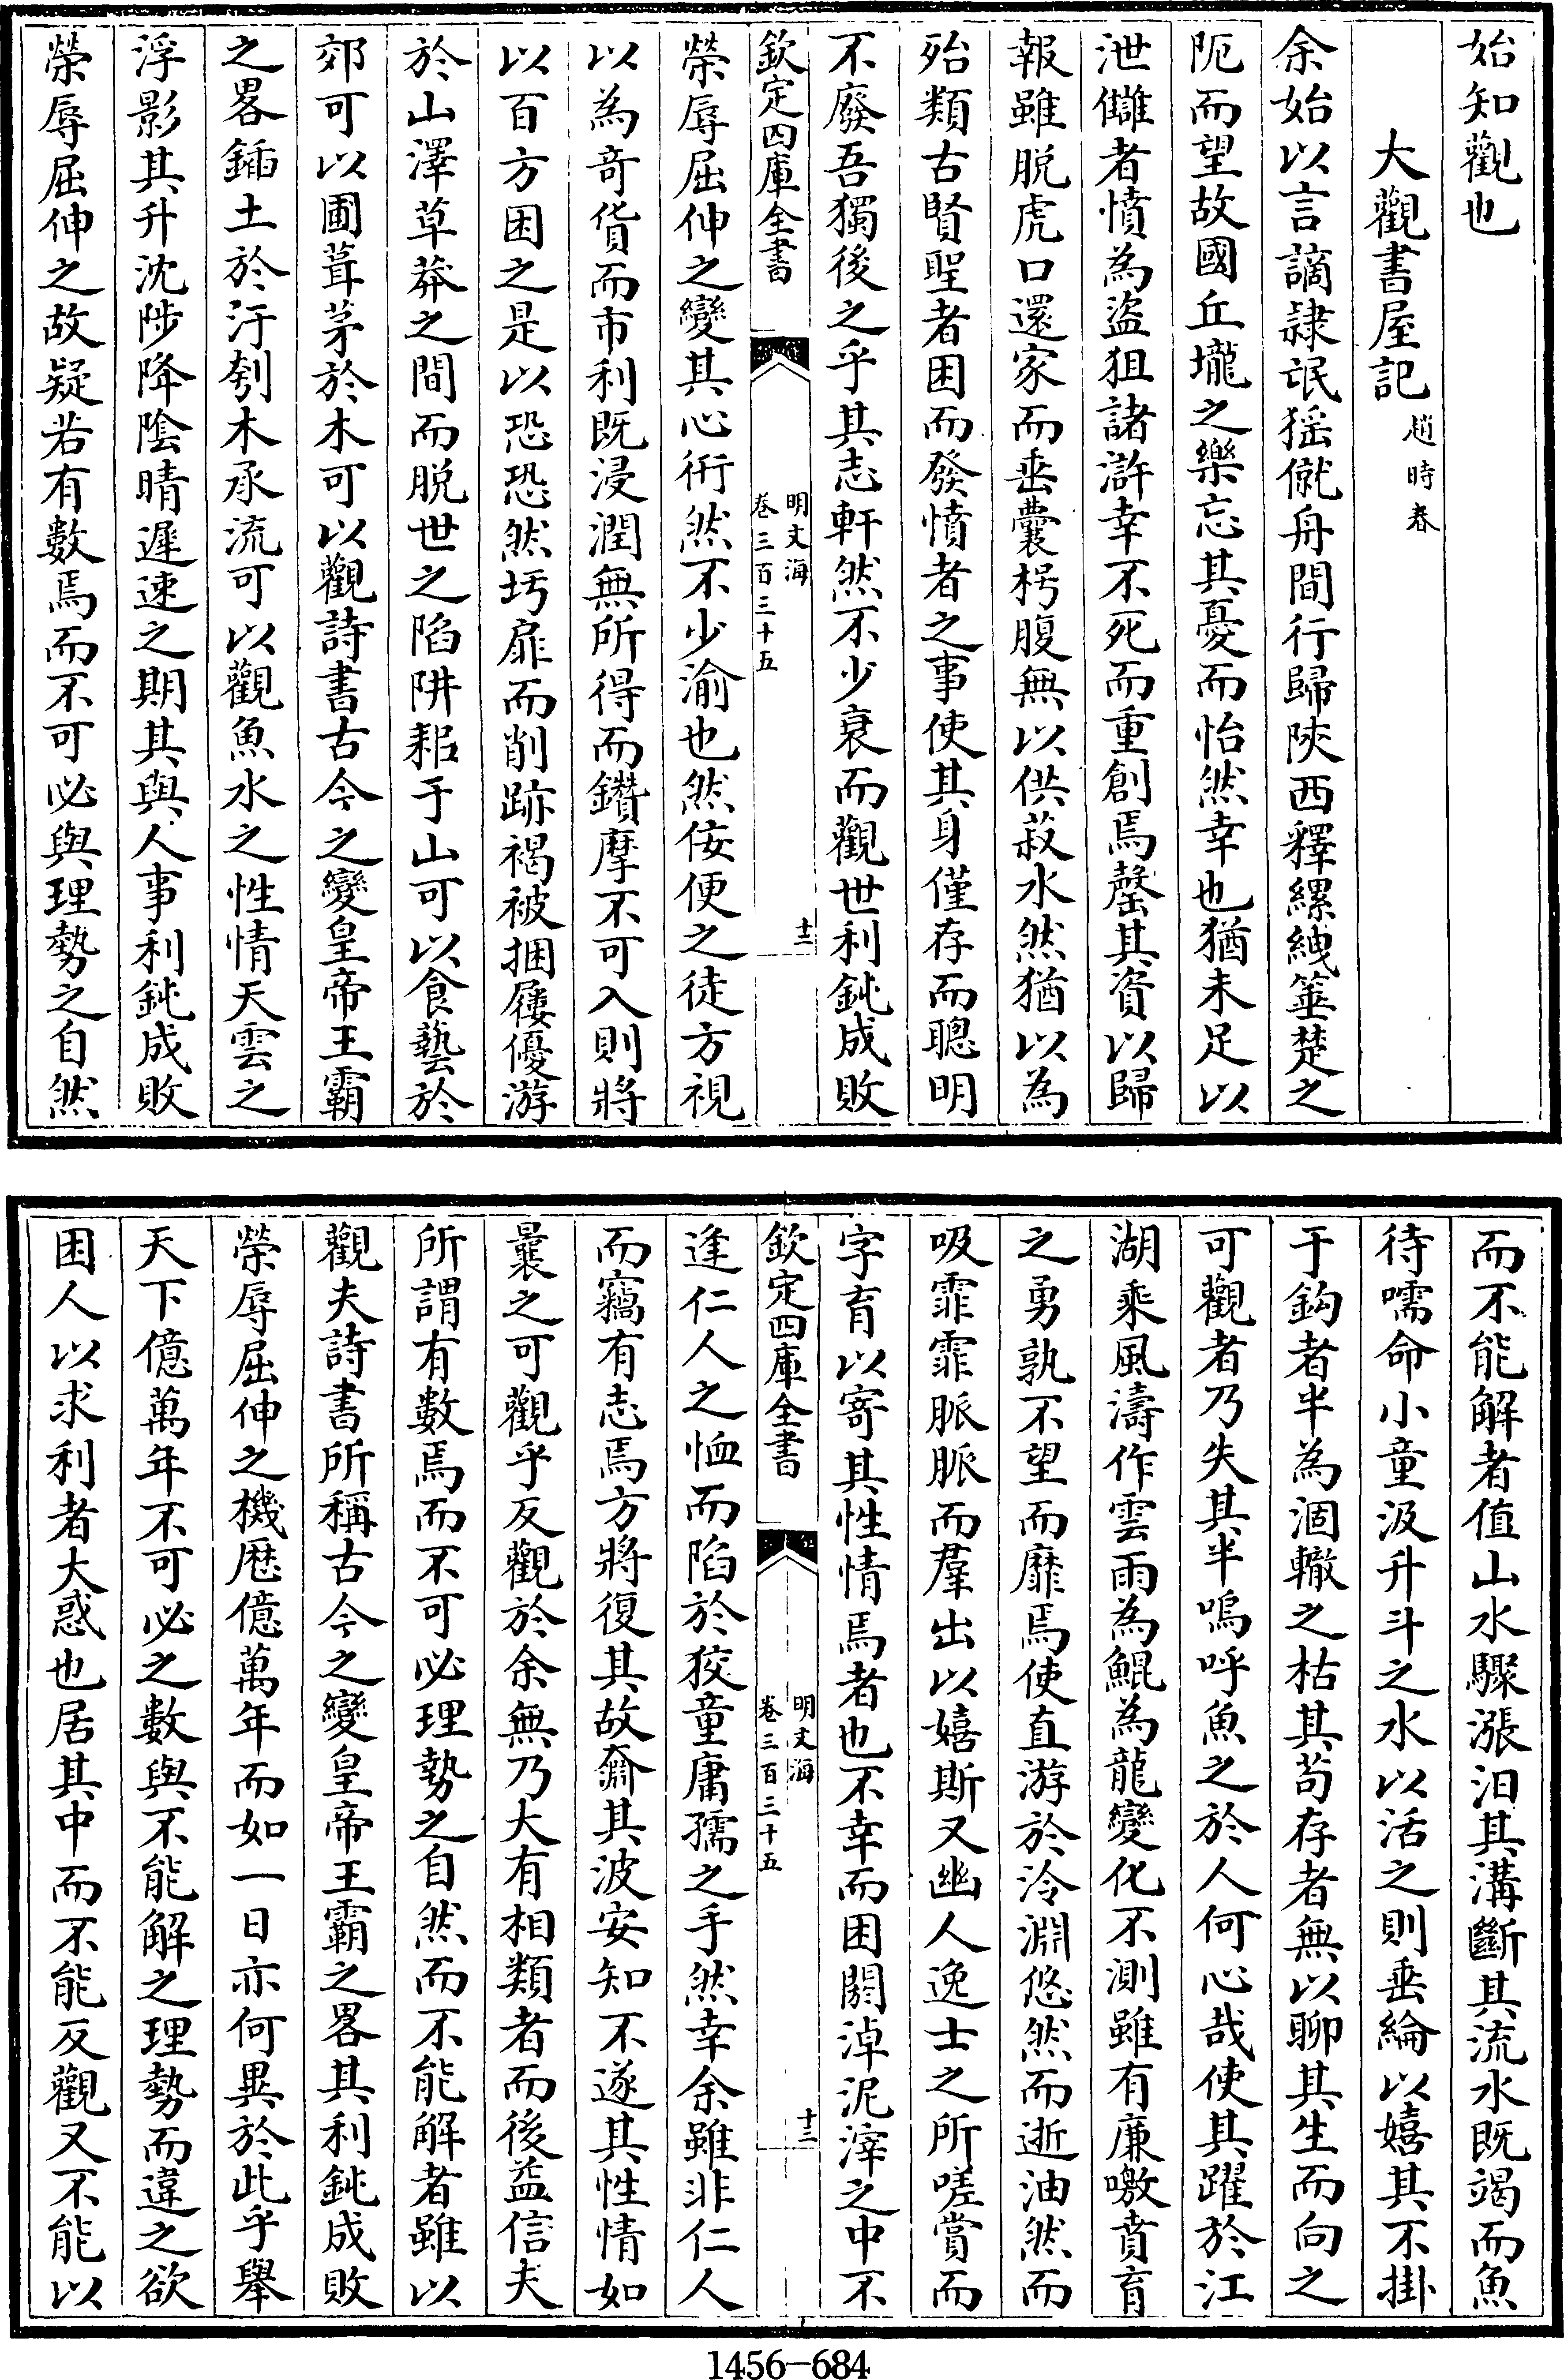 始知觀也
大觀書屋記趙時春
余始以言謫隷氓猺僦舟間行歸陜西釋縲絏箠楚之
阨而望故國丘壠之樂忘其憂而怡然幸也猶未足以
泄讎者憤為盜狙諸滸幸不死而重創焉罄其資以歸
報雖脱虎口還家而垂囊枵腹無以供菽水然猶以為
殆類古賢聖者困而發憤者之事使其身僅存而聰明
不廢吾獨後之乎其志軒然不少衰而觀世利鈍成敗
欽定四庫全書
明文海
卷三百三十五
十二
榮辱屈伸之變其心衎然不少渝也然佞便之徒方視
以為竒貨而市利既浸潤無所得而鑽摩不可入則將
以百方困之是以恐恐然圬扉而削跡褐被捆屨優游
於山澤草莽之間而脱世之陷阱耜于山可以食藝於
郊可以圃葺茅於木可以觀詩書古今之變皇帝王霸
之畧鍤土於汙刳木承流可以觀魚水之性情天雲之
浮影其升沈陟降隂晴遲速之期其與人事利鈍成敗
榮辱屈伸之故疑若有數焉而不可必與理勢之自然
而不能解者值山水驟漲汨其溝斷其流水既竭而魚
待嚅命小童汲升斗之水以活之則垂綸以嬉其不掛
于鈎者半為涸轍之枯其茍存者無以聊其生而向之
可觀者乃失其半嗚呼魚之於人何心哉使其躍於江
湖乘風濤作雲雨為鯤為龍變化不測雖有廉噭賁育
之勇孰不望而靡焉使直游於泠淵悠然而逝油然而
吸霏霏脈脈而羣出以嬉斯又幽人逸士之所嗟賞而
字育以寄其性情焉者也不幸而困閼淖泥滓之中不
欽定四庫全書
明文海
卷三百三十五
十三
逢仁人之恤而陷於狡童庸孺之手然幸余雖非仁人
而竊有志焉方將復其故奫其波安知不遂其性情如
曩之可觀乎反觀於余無乃大有相類者而後益信夫
所謂有數焉而不可必理勢之自然而不能解者雖以
觀夫詩書所稱古今之變皇帝王霸之畧其利鈍成敗
榮辱屈伸之機厯億萬年而如一日亦何異於此乎舉
天下億萬年不可必之數與不能解之理勢而違之欲
困人以求利者大惑也居其中而不能反觀又不能以
1456-684